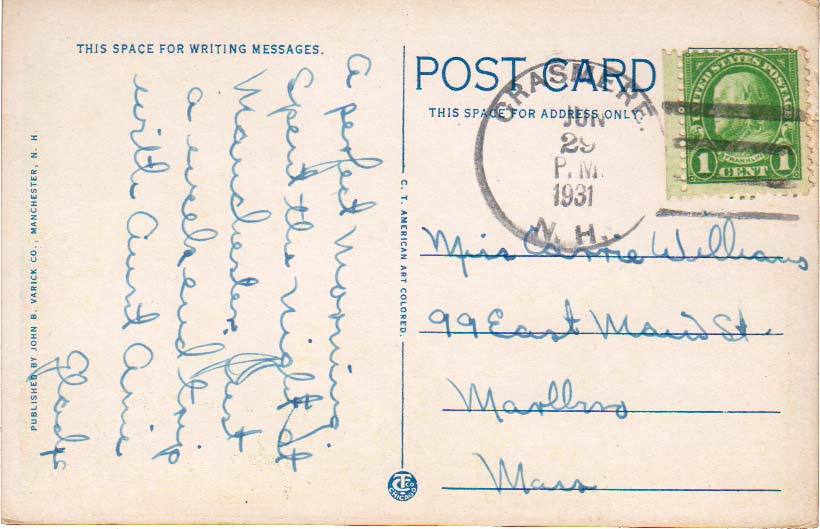 THIS SPACE FOR WRITING MESSAGES.
A perfect morning.
Spent the night at
Manchester. Just
a week end trip
with Aunt Annie
Gladys
PUBLISHED BY JOHN B. VARICK CO., MANCHESTER, N. H
C. T. AMERICAN ART COLORED.
CTCO
CHICAGO
POST CARD
THIS SPACE FOR ADDRESS ONLY.
GRASMERE
JUN
29
P.M.
1931
N. H.
UNITED STATES POSTAGE
FRANKLIN
1 CENT 1
Miss Carrie Williams
99 East Main St.
Marlboro
Mass